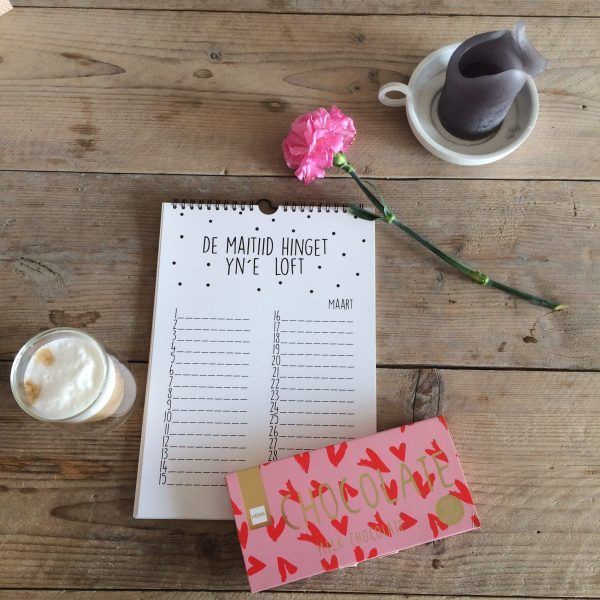 DE MAITIID HINGET
YN'E LOFT
MAART
1
2
3
4
5
6
7
8
9
10
11
12
13
14
15
16
17
18
19
20
21
22
23
24
25
26
27
28
HEMA
CHOCOLATE
MILK CHOCOLATE